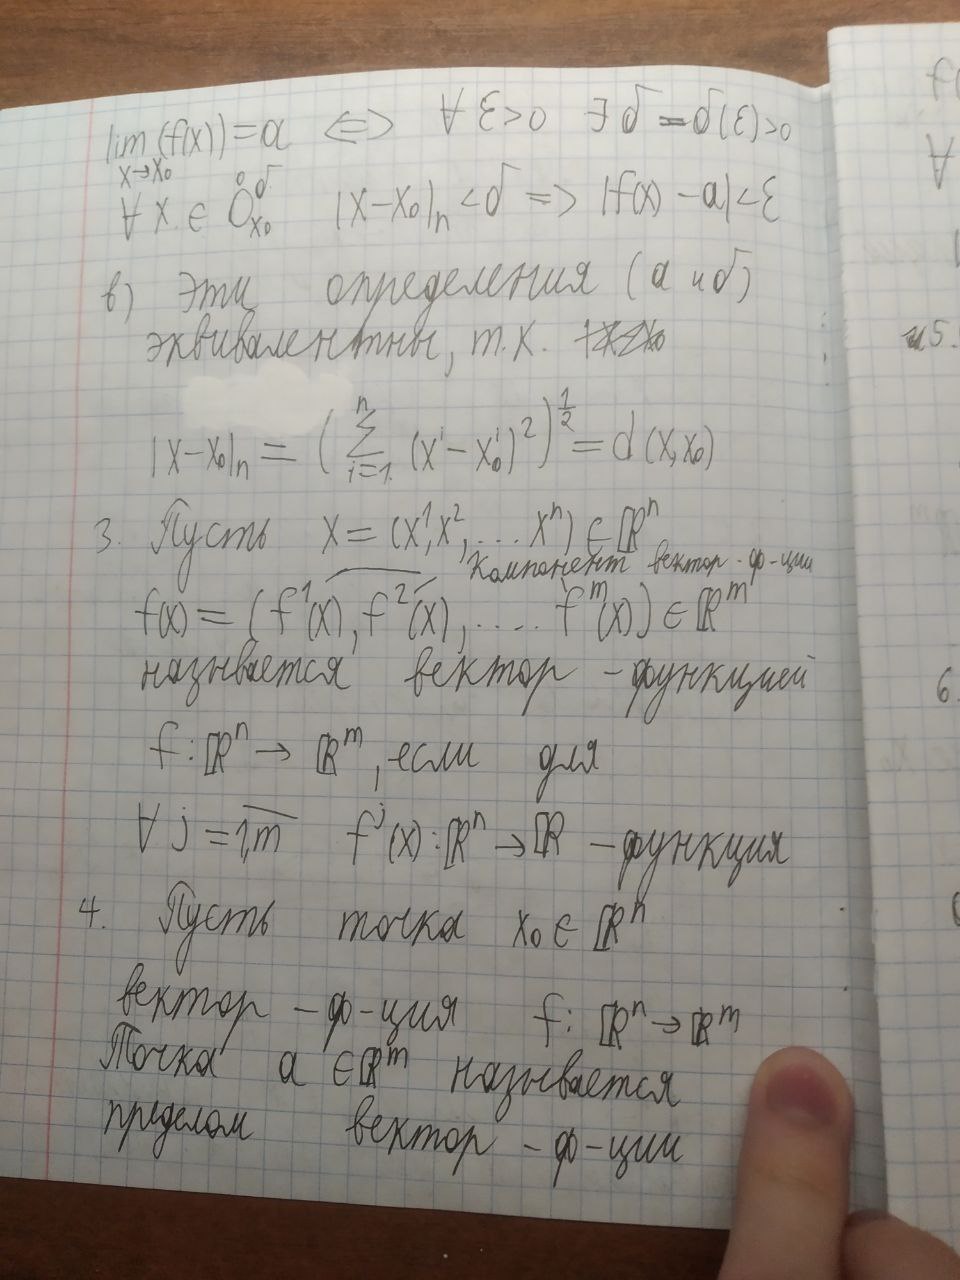 lim (f(x)) = a <=> ∀ ε>0 ∃ δ = δ(ε)>0
x→x₀
∀ x ∈ O̊^δ_x₀ |x-x₀|ₙ < δ => |f(x) - a| < ε
в) Эти определения (а и б)
эквивалентны, т.к.
|x-x₀|ₙ = (∑_{i=1}^{n} (xⁱ - x₀ⁱ)²)^{1/2} = d(x,x₀)
3. Пусть x = (x¹,x², ... xⁿ) ∈ ℝⁿ
Компонент вектор-ф-ции
f(x) = (f¹(x), f²(x), .... fᵐ(x)) ∈ ℝᵐ
называется вектор-функцией
f: ℝⁿ → ℝᵐ, если для
∀ j = 1,m fʲ(x): ℝⁿ → ℝ - функция
4. Пусть точка x₀ ∈ ℝⁿ
вектор-ф-ция f: ℝⁿ → ℝᵐ
Точка a ∈ ℝᵐ называется
пределом вектор-ф-ции
5.
6.